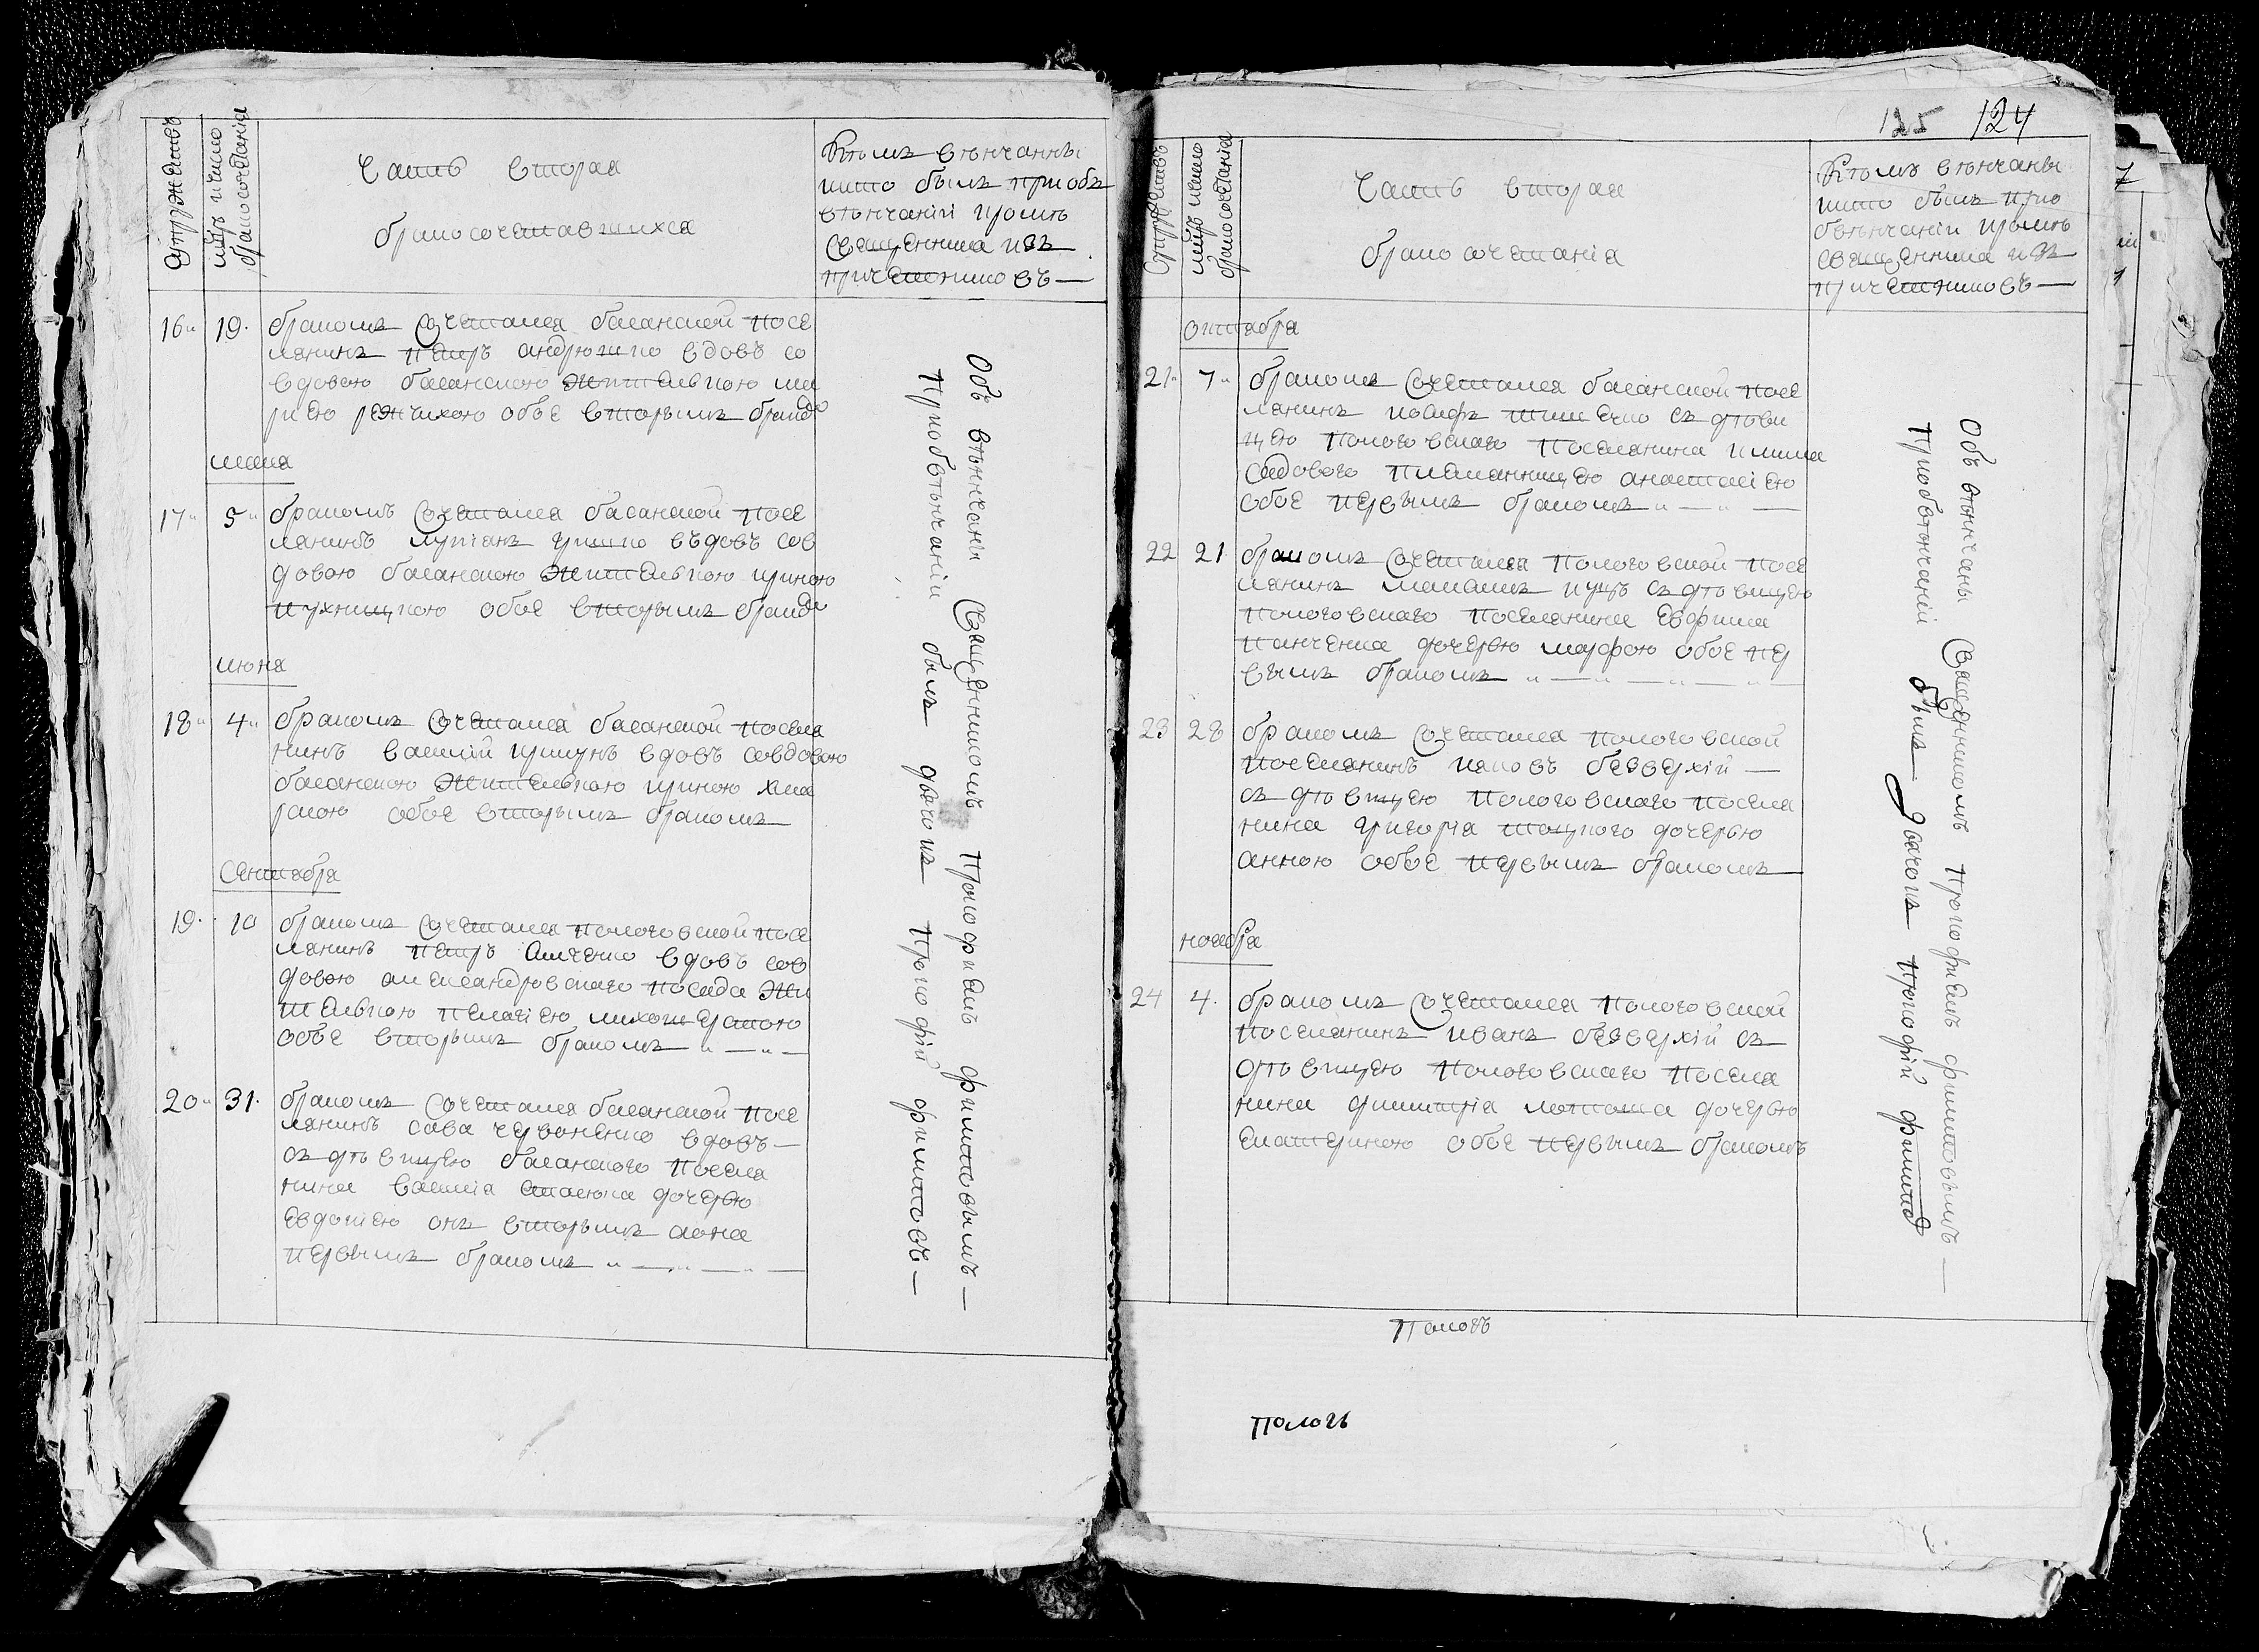 Супружествъ
мѣсѣцъ и число бракосочетанія
Часть вторая
бракосочетавшихся
Кѣмъ вѣнчанны
и кто былъ при объ
вѣнчаніи кромѣ
священника изъ
причетниковъ —
16 19. бракомъ сочетался басанской посе
лянинъ петръ андрющко вдовъ со
вдовою басанскою жителькою ма
ріею режчихою обое вторымъ брако
маия
17 5 бракомъ сочетался басанской посе
лянинъ лукіанъ гришко въдовъ сов
довою басанскою жителькою ириною
обое вторымъ бракомъ
июня
18 4 бракомъ сочетался басанской поселя
нинъ василій вдовъ совдовою
басанскою жителькою ириною хма
рською обое вторымъ бракомъ
Сентября
19. 10 бракомъ сочетался пологовской посе
лянинъ петръ вдовъ сов
довою александровскаго посада жи
телькою пелагіею
обое вторымъ бракомъ „ — „ —
20 31. бракомъ сочетался басанской посе
лянинъ сава червоненко вдовъ —
съ дѣвицею басанского поселя
нина василія стасюка дочерью
евдокіею онъ вторымъ аона
первымъ бракомъ „ — „ — „ —
Объ вѣнчаны Священникомъ Прокофиемъ филиповымъ —
При объвѣнчаніи былъ дьячокъ Прокофій филиповъ —
125 124
Супружествъ
мѣсѣцъ и число бракосочетанія
Часть вторая
бракосочетанія
Кѣмъ вѣнчаны
и кто былъ при о
бвѣнчаніи кромѣ
священника изъ
причетниковъ —
октября
21 7 бракомъ сочетался басанской посе
лянинъ иосифъ съ дѣви
цею пологовскаго поселянина
садового племянницею анастасіею
обое первымъ бракомъ „ — „ —
22 21 бракомъ сочетался пологовской посе
лянинъ куцъ съ дѣвицею
пологовскаго поселянина евфима
панченка дочерью марфою обое пер
вымъ бракомъ „ — „ — „ — „
23 28 бракомъ сочетался пологовской
поселянинъ иаковъ безверхій —
съ дѣвицею пологовскаго поселя
нина григорія дочерью
анною обое первымъ бракомъ —
ноября
24 4. бракомъ сочетался пологовской
поселянинъ иванъ безверхій съ
дѣвицею пологовскаго поселя
нина димитрія дочерью
екатериною обое первымъ бракомъ
Объ вѣнчаны Священникомъ Прокофиемъ филиповымъ —
При объвѣнчаніи былъ Дьячокъ Прокофій филипов
Пологъ
пологъ